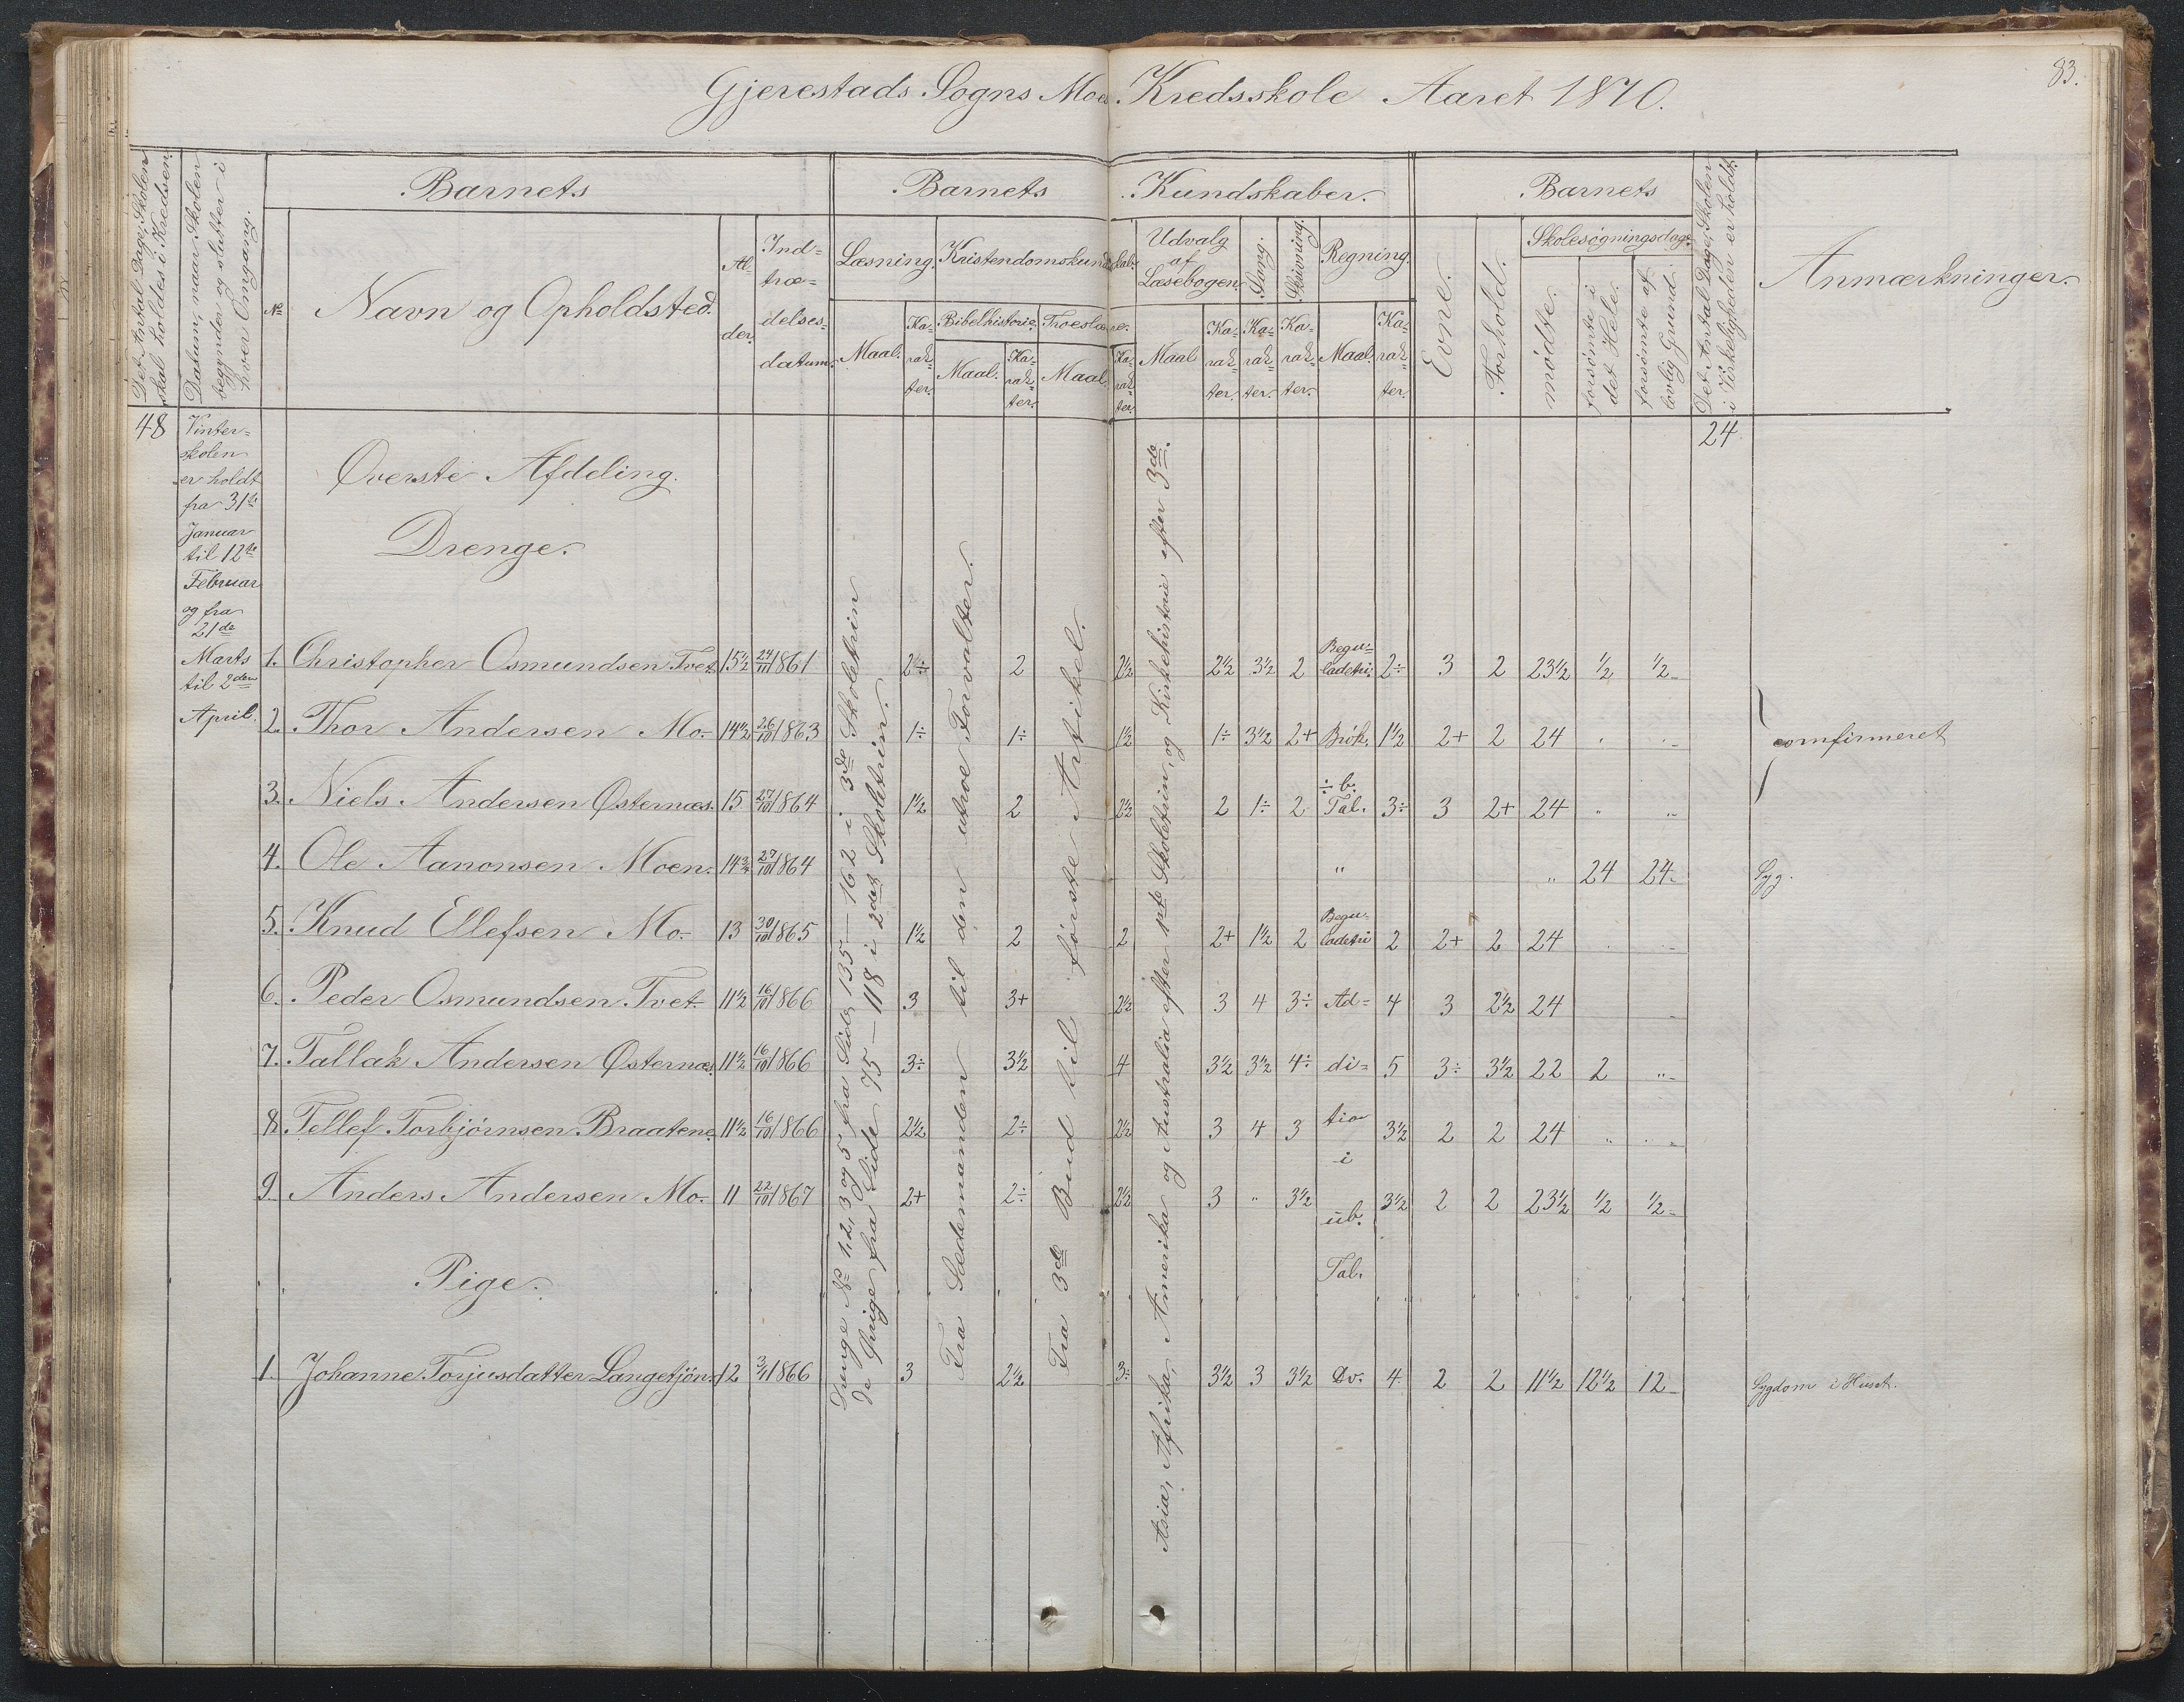 83.
Gjerestads Sogns Moe Kredsskole Aaret 1870.
Det Antal Dage, Skolen skal holdes i Kredsen.
Datum, naar Skolen begynder og slutter i hver Omgang.
Barnets
Barnets Kundskaber.
Barnets
Det Antal Dage, Skolen i Virkeligheden er holdt.
Anmærkninger.
No
Navn og Opholdsted.
Alder.
Indtrædelsesdatum.
Læsning.
Kristendomskundskab.
Udvalg af Læsebogen.
Sang.
Skrivning.
Regning.
Evne.
Forhold.
Skolesøgningsdage
mødte.
forsømte i det Hele.
forsømte af lovlig Grund.
Bibelhistorie.
Troeslære.
Maal. Karakter. Maal. Karakter. Maal. Karakter. Maal Karakter. Karakter. Karakter. Maal. Karakter.
48
Vinter=
skolen
er holdt
fra 31te
Januar
til 12te
Februar
og fra
21de
Marts
til 2den
April.
24.
Øverste Afdeling.
Drenge.
1. Christopher Osmundsen Tvet 15½ 24/11 1861 2½÷ 2 2½ 2½ 3½ 2 Reguladetri. 2÷ 3 2 23½ ½ ½
2. Thor Andersen Mo. 14½ 26/10 1863 1÷ 1÷ 1½ 1÷ 3½ 2+ Brök. 1½ 2+ 2 24 " "
confirmeret
3. Niels Andersen Østernæs. 15 27/10 1864 1½ 2 2½ 2 1÷ 2 ÷ b. Tal. 3÷ 3 2+ 24 " "
4. Ole Aanonsen Moen. 14¾ 27/10 1864 " " 24 24 Syg.
5. Knud Ellefsen Mo. 13 30/10 1865 1½ 2 2 2+ 1½ 2 Reguladetri 2 2+ 2 24 " "
6. Peder Osmundsen Tvet 11½ 16/10 1866 3 3+ 2½ 3 4 3÷ Ad= 4 3 2½ 24
7. Tallak Andersen Østernæs. 11½ 16/10 1866 3÷ 3½ 4 3½ 3½ 4÷ di= 5 3÷ 3½ 22 2 "
8. Tellef Torbjørnsen Braatene. 11½ 16/10 1866 2½ 2÷ 2½ 3 4 3 tio 3½ 2 2 24 " "
i
9. Anders Andersen Mo. 11 22/10 1867 2+ 2÷ 2½ 3 " 3½ üb. 3½ 2 2 23½ ½ ½
Tal.
Pige.
1. Johanne Torjusdatter Langetjøn. 12 3/11 1866 3 2½ 3÷ 3½ 3 3½ Do. 4 2 2 11½ 12½ 12 Sygdom i Huset.
Drenge No 1, 2, 3 og 5 fra Side 135 — 162 i 3de Skoletrin
de Øvrige fra Side 75 — 118 i 2det Skoletrin.
Fra Sædemanden til den utroe Forvalter.
Fra 3de Bud til første Artikel.
Asia, Afrika, Amerika og Australia efter 1ste Skoletrin, og Kirkehistorie efter 3de.